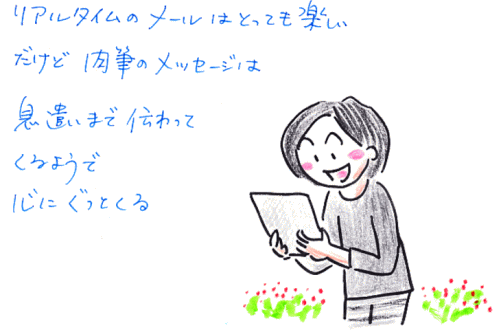 リアルタイムのメールはとっても楽しい
だけど 肉筆のメッセージは
息遣いまで伝わって
くるようで
心にぐっとくる